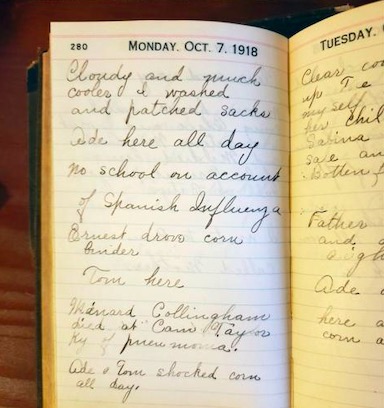 280 MONDAY. OCT. 7, 1918
Cloudy and much
cooler I washed
and patched sacks
Ade here all day
no school on account
of Spanish Influenza
Ernest drove corn
binder
Tom here
Menard Collingham
died at Cam Taylor
Ky of pneumonia.
Ade & Tom shocked corn
all day.
TUESDAY.
Clear
up
my self
her chil
Sabina
an
Father
and
Ade
here a
corn a